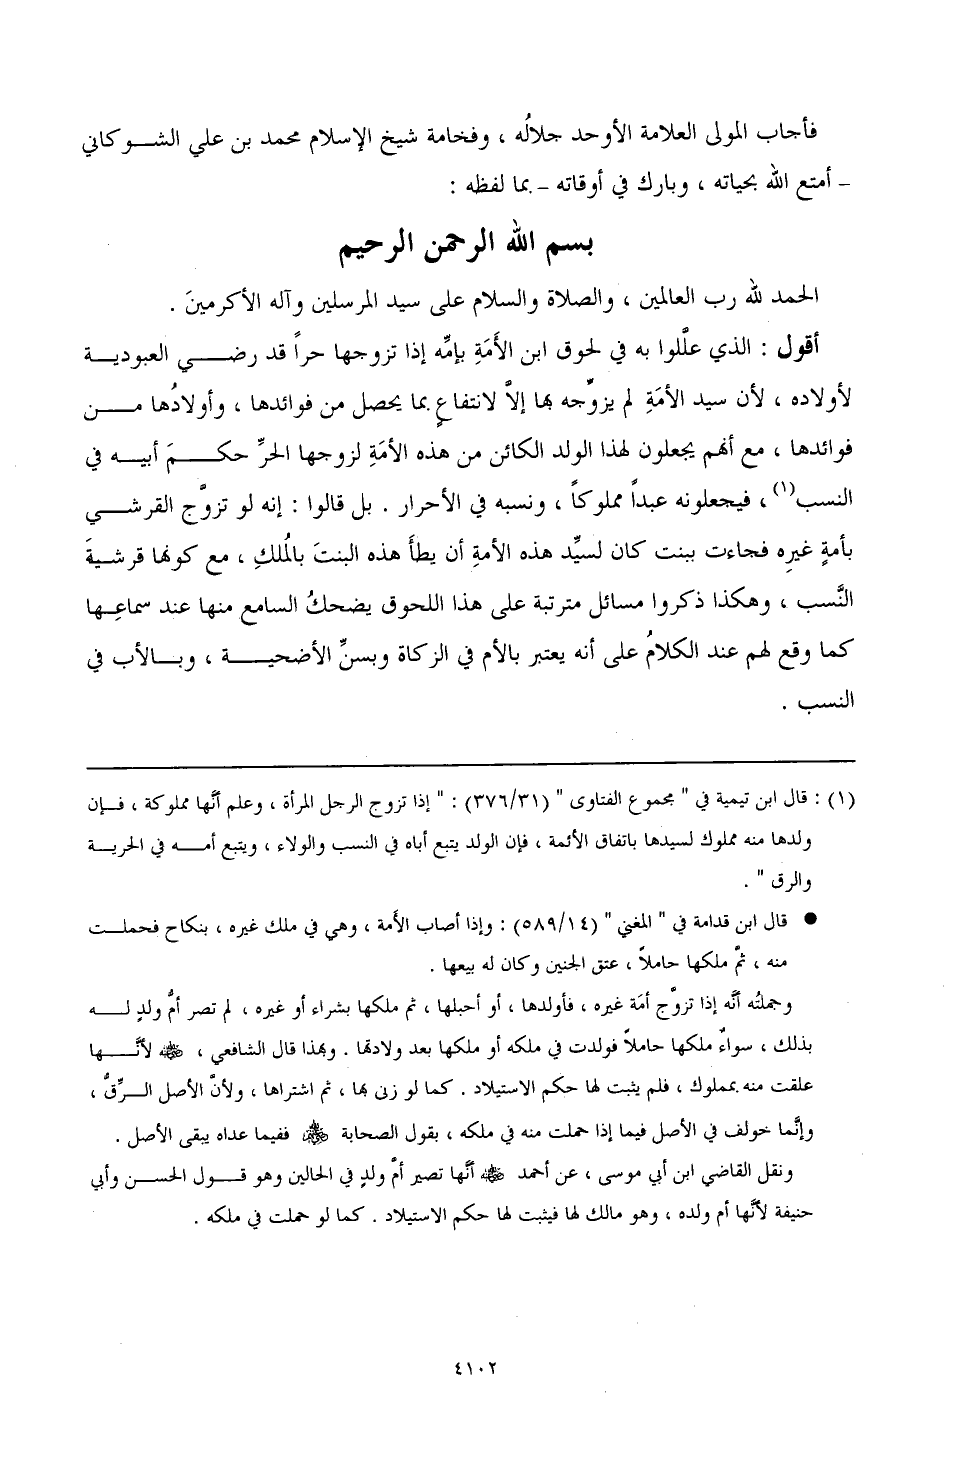 فأجاب المولى العلامة الأوحد جلالُه ، وفخامة شيخ الإسلام محمد بن علي الشوكاني
– أمتع الله بحياته ، وبارك في أوقاته – بما لفظه :
بسم الله الرحمن الرحيم
الحمد لله رب العالمين ، والصلاة والسلام على سيد المرسلين وآله الأكرمينَ .
أقول : الذي علَّلوا به في لحوق ابن الأَمَةِ بإمِّه إذا تزوجها حراً قد رضي العبودية
لأولاده ، لأن سيد الأمَةِ لم يزوِّجه بها إلاَّ لانتفاعٍ بما يحصل من فوائدها ، وأولادُها من
فوائدها ، مع أنهم يجعلون لهذا الولد الكائن من هذه الأمَةِ لزوجها الحرِّ حكمَ أبيه في
النسب(١) ، فيجعلونه عبداً مملوكاً ، ونسبه في الأحرار . بل قالوا : إنه لو تزوَّج القرشي
بأمةٍ غيرِه فجاءت ببنت كان لسيِّد هذه الأمةِ أن يطأَ هذه البنتَ بالمُلكِ ، مع كونها قرشيةَ
النَّسب ، وهكذا ذكروا مسائل مترتبة على هذا اللحوق يضحكُ السامع منها عند سماعِها
كما وقع لهم عند الكلامُ على أنه يعتبر بالأم في الزكاة وبسنِّ الأضحية ، وبالأب في
النسب .
(١) : قال ابن تيمية في " مجموع الفتاوى " (٣٧٦/٣١) : " إذا تزوج الرجل المرأة ، وعلم أنَّها مملوكة ، فإن
ولدها منه مملوك لسيدها باتفاق الأئمة ، فإن الولد يتبع أباه في النسب والولاء ، ويتبع أمه في الحرية
والرق " .
● قال ابن قدامة في " المغني " (٥٨٩/١٤) : وإذا أصاب الأمة ، وهي في ملك غيره ، بنكاح فحملت
منه ، ثمَّ ملكها حاملاً ، عتق الجنين وكان له بيعها .
وجملتُه أنَّه إذا تزوَّج أمَة غيره ، فأولدها ، أو أحبلها ، ثم ملكها بشراء أو غيره ، لم تصر أمُّ ولدٍ له
بذلك ، سواءٌ ملكها حاملاً فولدت في ملكه أو ملكها بعد ولادتها . وبهذا قال الشافعي ، ﷺ لأنَّها
علقت منه بمملوك ، فلم يثبت لها حكم الاستيلاد . كما لو زنى بها ، ثم اشتراها ، ولأنَّ الأصل الرِّقُّ ،
وإنَّما خولف في الأصل فيما إذا حملت منه في ملكه ، بقول الصحابة ﷺ ففيما عداه يبقى الأصل .
ونقل القاضي ابن أبي موسى ، عن أحمد ﷺ أنَّها تصير أمَّ ولدٍ في الحالين وهو قول الحسن وأبي
حنيفة لأنَّها أم ولده ، وهو مالك لها فيثبت لها حكم الاستيلاد . كما لو حملت في ملكه .
٤١٠٢